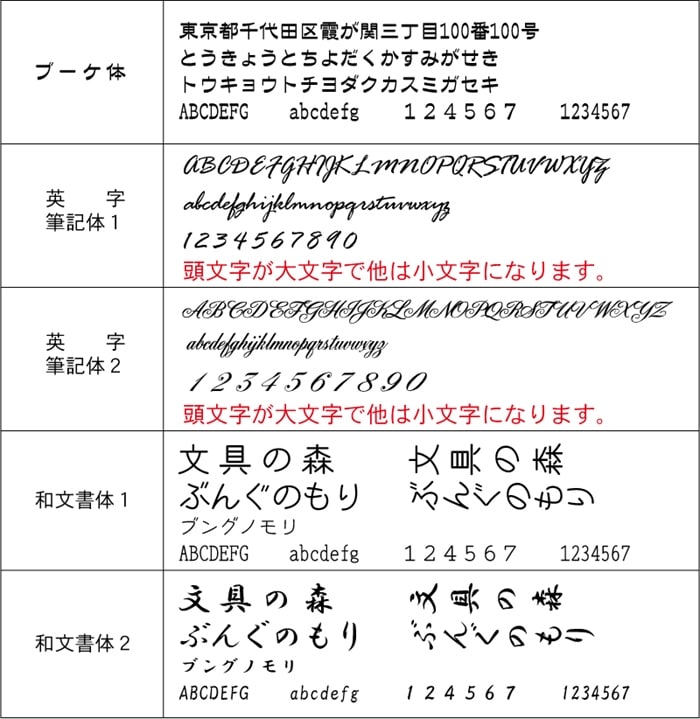 ブーケ体
東京都千代田区霞が関三丁目100番100号
とうきょうとちよだくかすみがせき
トウキョウトチヨダクカスミガセキ
ABCDEFG abcdefg １２４５６７ 1234567
英　字
筆記体１
ABCDEFGHIJKLMNOPQRSTUVWXYZ
abcdefghijklmnopqrstuvwxyz
1234567890
頭文字が大文字で他は小文字になります。
英　字
筆記体２
ABCDEFGHIJKLMNOPQRSTUVWXYZ
abcdefghijklmnopqrstuvwxyz
1234567890
頭文字が大文字で他は小文字になります。
和文書体１
文具の森 文具の森
ぶんぐのもり ぶんぐのもり
ブングノモリ
ABCDEFG abcdefg １２４５６７ 1234567
和文書体２
文具の森 文具の森
ぶんぐのもり ぶんぐのもり
ブングノモリ
ABCDEFG abcdefg １２４５６７ 1234567